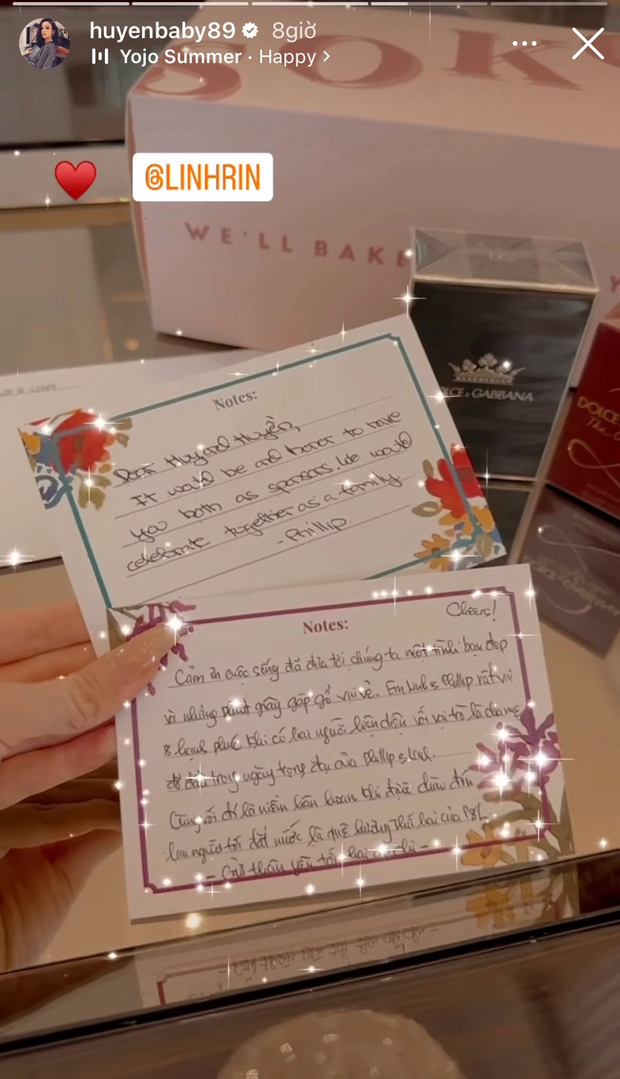 huyenbaby89 8giờ
Yojo Summer · Happy >
@LINHRIN
WE'LL BAKE
DOLCE & GABBANA
DOLCE
The O
Notes:
Dear Huy and Huyền,
It would be and honor to have
you both as sponsors. We would
celebrate together as a family
-Phillip
Cheers!
Notes:
Cảm ơn cuộc sống đã đưa tới chúng ta một tình bạn đẹp
và những phút giây gặp gỡ vui vẻ. Em Linh & Phillip rất vui
& hạnh phúc khi có hai người hiện diện với vai trò là cha mẹ
đỡ đầu trong ngày trọng đại của Phillip & Linh.
Cùng với đó là niềm hân hoan khi được chào đón
hai người tới đất nước là quê hương thứ hai của P&L.
- Gửi thân yêu tới hai